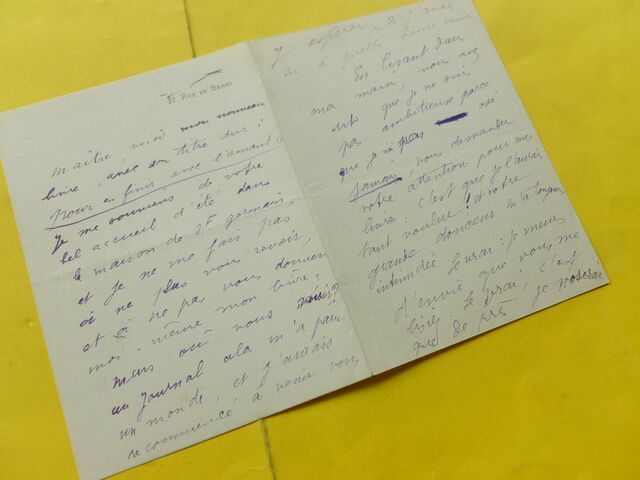 37, RUE DE BERRI
Maître, voici mon nouveau
livre, avec son titre dur :
Pour en finir avec l'amant
Je me souviens de votre
bel accueil d'été, dans
la maison de St germain,
et je ne me fais pas
à ne plus vous revoir,
et à ne pas vous donner
moi-même mon livre ;
mais où vous
un journal m'a paru
un monde, et j'aurais
recommencé, à venir vous
y espérer
à quelle heure
Lisant dans
ma main, vous avez
dit que je ne suis
pas ambitieuse parce
que je n'ai pas osé
jamais vous demander
votre attention pour mes
livres : c'est que je l'aurais
tant voulue ! et votre
grande douceur m'a toujours
intimidée. Le vrai : je meurs
d'envie que vous me
lisiez. Le vrai, c'est
que de près je n'oserai